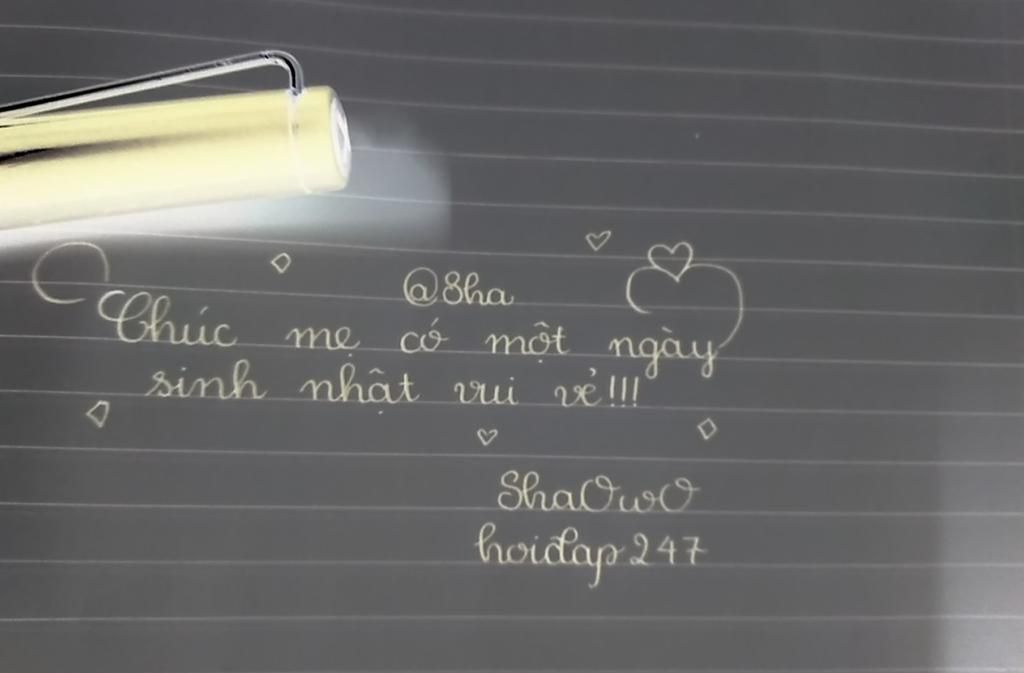 @Sha
Chúc mẹ có một ngày
sinh nhật vui vẻ!!!
ShaOwO
hoiđap247